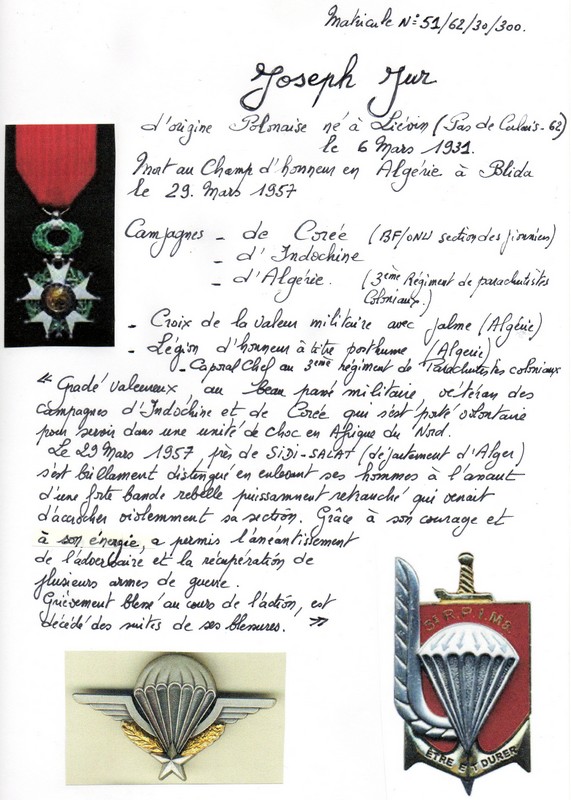 Matricule N: 51/62/30/300.
Joseph Jur
d'origine Polonaise né à Liévin (Pas de Calais-62)
le 6 Mars 1931.
Mort au Champ d'honneur en Algérie à Blida
le 29. Mars 1957
Campagnes - de Corée (BF/ONU section des pionniers)
- d'Indochine
- d'Algérie. (3ème Régiment de parachutistes
Coloniaux.)
- Croix de la valeur militaire avec palme (Algérie)
- Légion d'honneur à titre posthume (Algérie)
- Caporal Chef au 3ème régiment de Parachutistes coloniaux
" Gradé valeureux au beau passé militaire vétéran des
campagnes d'Indochine et de Corée qui s'est porté volontaire
pour servir dans une unité de choc en Afrique du Nord.
Le 29 Mars 1957, près de SIDI-SALAT (département d'Alger)
s'est brillament distingué en enlevant ses hommes à l'assaut
d'une forte bande rebelle puissamment retranché qui venait
d'accrocher violemment sa section. Grâce à son courage et
à son énergie, a permis l'anéantissement
de l'adversaire et la récupération de
plusieurs armes de guerre.
Grièvement blessé au cours de l'action, est
décédé des suites de ses blessures. "
3e R.P.I.Ma.
ÊTRE ET DURER